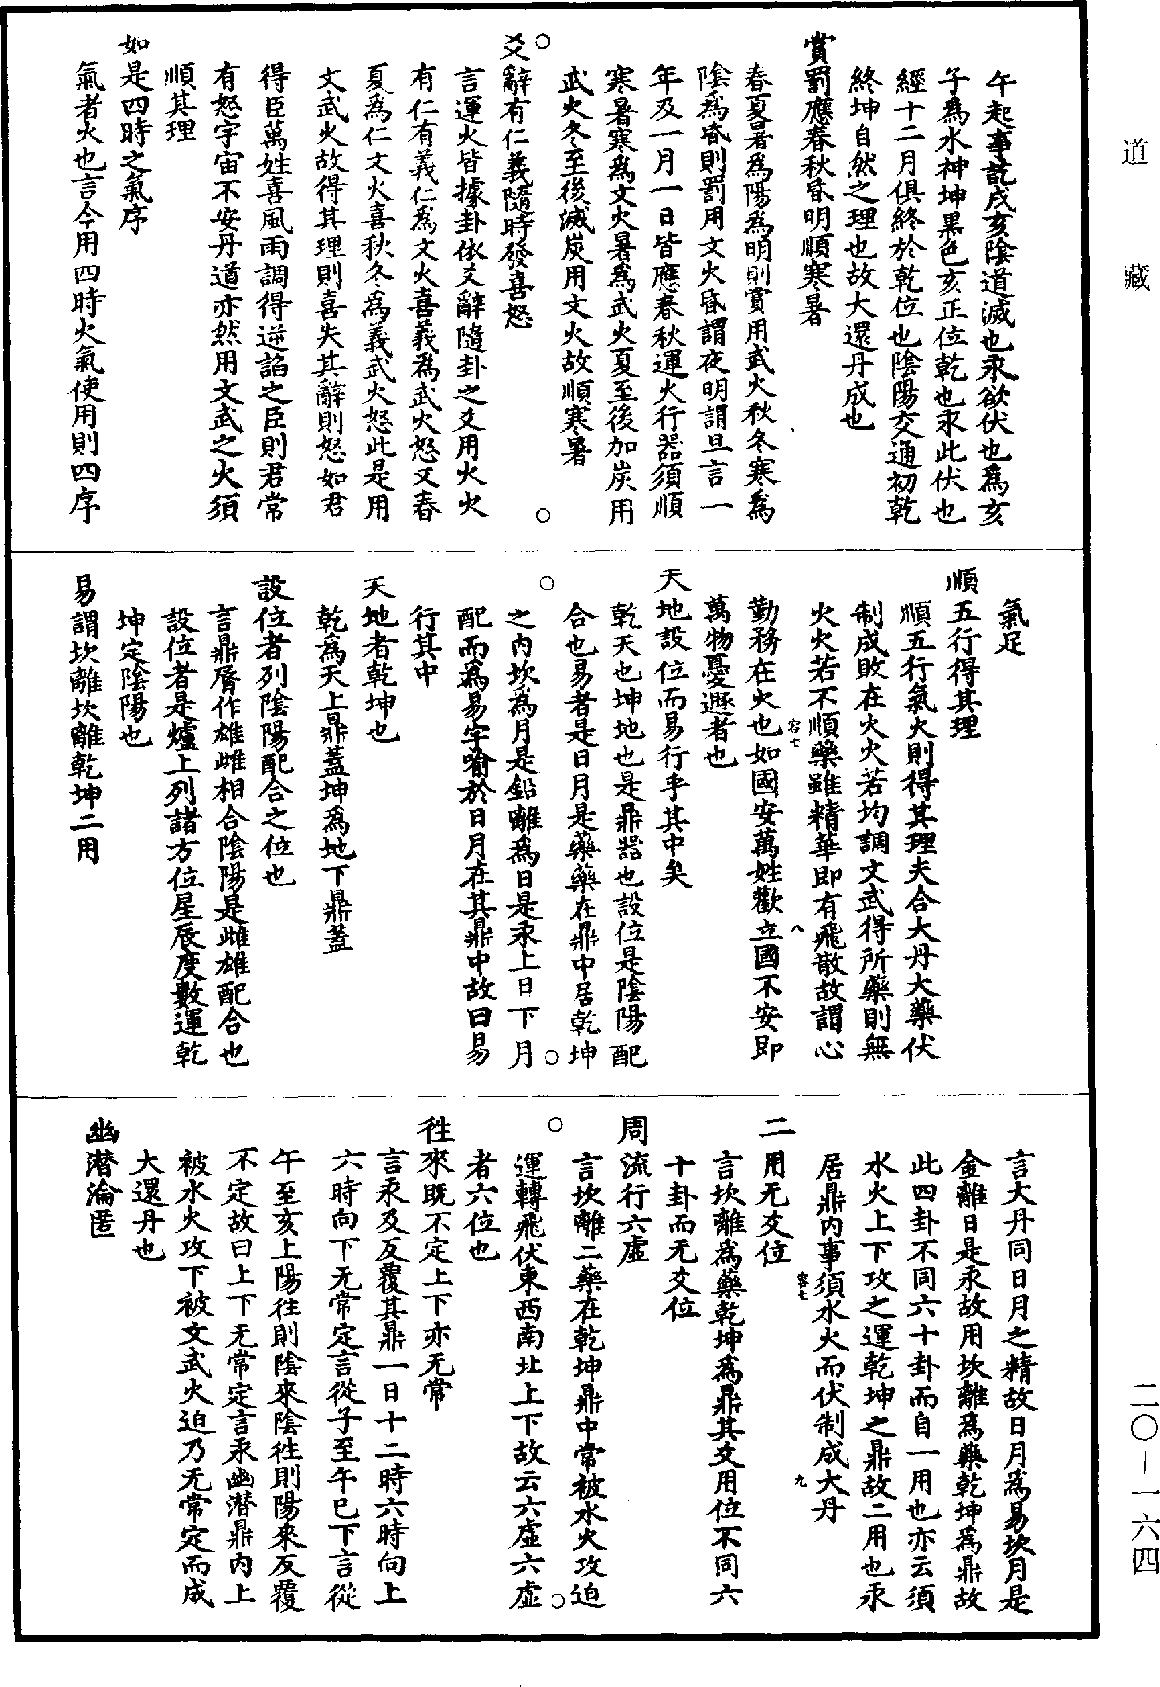 午起事訖戌亥陰道減也汞欲伏也為亥
子為水神坤黑色亥正位乾也汞此伏也
經十二月俱終於乾位也陰陽交通初乾
終坤自然之理也故大還丹成也
賞罰應春秋昏明順寒暑
春夏暑為陽為明則賞用武火秋冬寒為
陰為昏則罰用文火昏謂夜明謂旦言一
年及一月一日皆應春秋運火行器須順
寒暑寒為文火暑為武火夏至後加炭用
武火冬至後減炭用文火故順寒暑
爻辭有仁義隨時發喜怒
言運火皆據卦依爻辭隨卦之爻用火火
有仁有義仁為文火喜義為武火怒又春
夏為仁文火喜秋冬為義武火怒此是用
文武火故得其理則喜失其辭則怒如君
得臣萬姓喜風雨調得逆謟之臣則君常
有怒宇宙不安丹道亦然用文武之火須
順其理
如是四時之氣序
氣者火也言今用四時火氣使用則四序
氣足
順五行得其理
順五行氣火則得其理夫合大丹大藥伏
制成敗在火火若均調文武得所藥則無
火火若不順藥雖精華即有飛散故謂心
容七
八
勤務在火也如國安萬姓歡立國不安即
萬物憂遯者也
天地設位而易行乎其中矣
乾天也坤地也是鼎器也設位是陰陽配
合也易者是日月是藥藥在鼎中居乾坤
之內坎為月是鉛離為日是汞上日下月
配而為易字喻於日月在其鼎中故曰易
行其中
天地者乾坤也
乾為天上鼎蓋坤為地下鼎蓋
設位者列陰陽配合之位也
言鼎脣作雄雌相合陰陽是雌雄配合也
設位者是爐上列諸方位星辰度數運乾
坤定陰陽也
易謂坎離坎離乾坤二用
言大丹同日月之精故日月為易坎月是
金離日是汞故用坎離為藥乾坤為鼎故
此四卦不同六十卦而自一用也亦云須
水火上下攻之運乾坤之鼎故二用也汞
居鼎內事須水火而伏制成大丹
容七
九
二用无爻位
言坎離為藥乾坤為鼎其爻用位不同六
十卦而无爻位
周流行六虛
言坎離二藥在乾坤鼎中常被水火攻迫
運轉飛伏東西南北上下故云六虛六虛
者六位也
徃來既不定上下亦无常
言汞及反覆其鼎一日十二時六時向上
六時向下无常定言從子至午巳下言從
午至亥上陽徃則陰來陰徃則陽來反覆
不定故曰上下无常定言汞幽潛鼎內上
被水火攻下被文武火迫乃无常定而成
大還丹也
幽潛淪匿
道藏
二〇—一六四